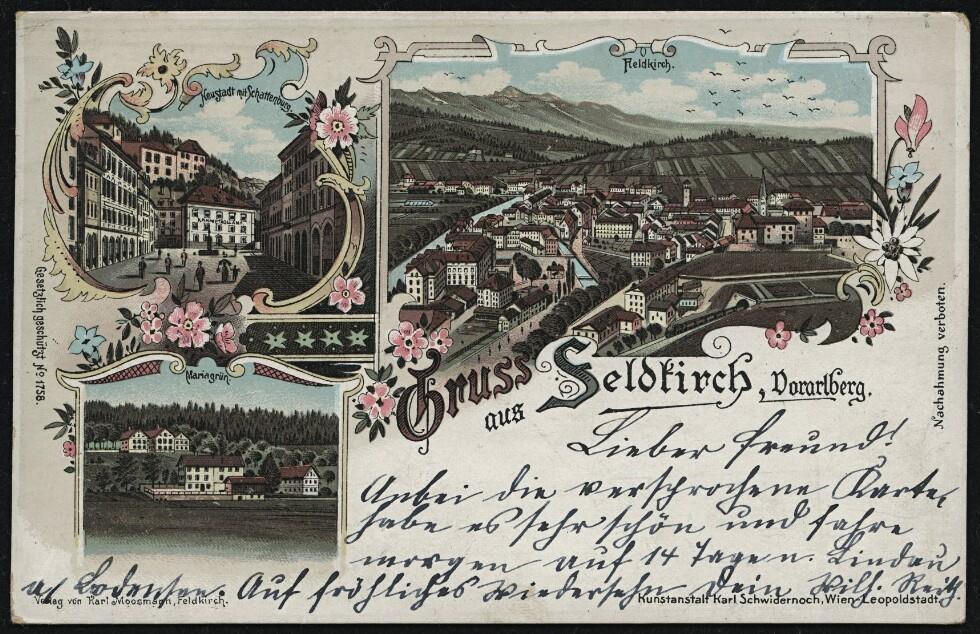 Neustadt mit Schattenburg.
Feldkirch.
Gesetzlich geschützt No 1758.
Mariagrün.
Nachahmung verboten.
Gruss
aus
Feldkirch, Vorarlberg.
Lieber Freund!
Anbei die versprochene Karte,
habe es sehr schön und fahre
morgen auf 14 Tage n. Lindau
a/ Bodensee. Auf fröhliches Wiedersehn Dein Wilh. Reith.
Verlag von Karl Moosmann, Feldkirch.
Kunstanstalt Karl Schwidernoch, Wien-Leopoldstadt.